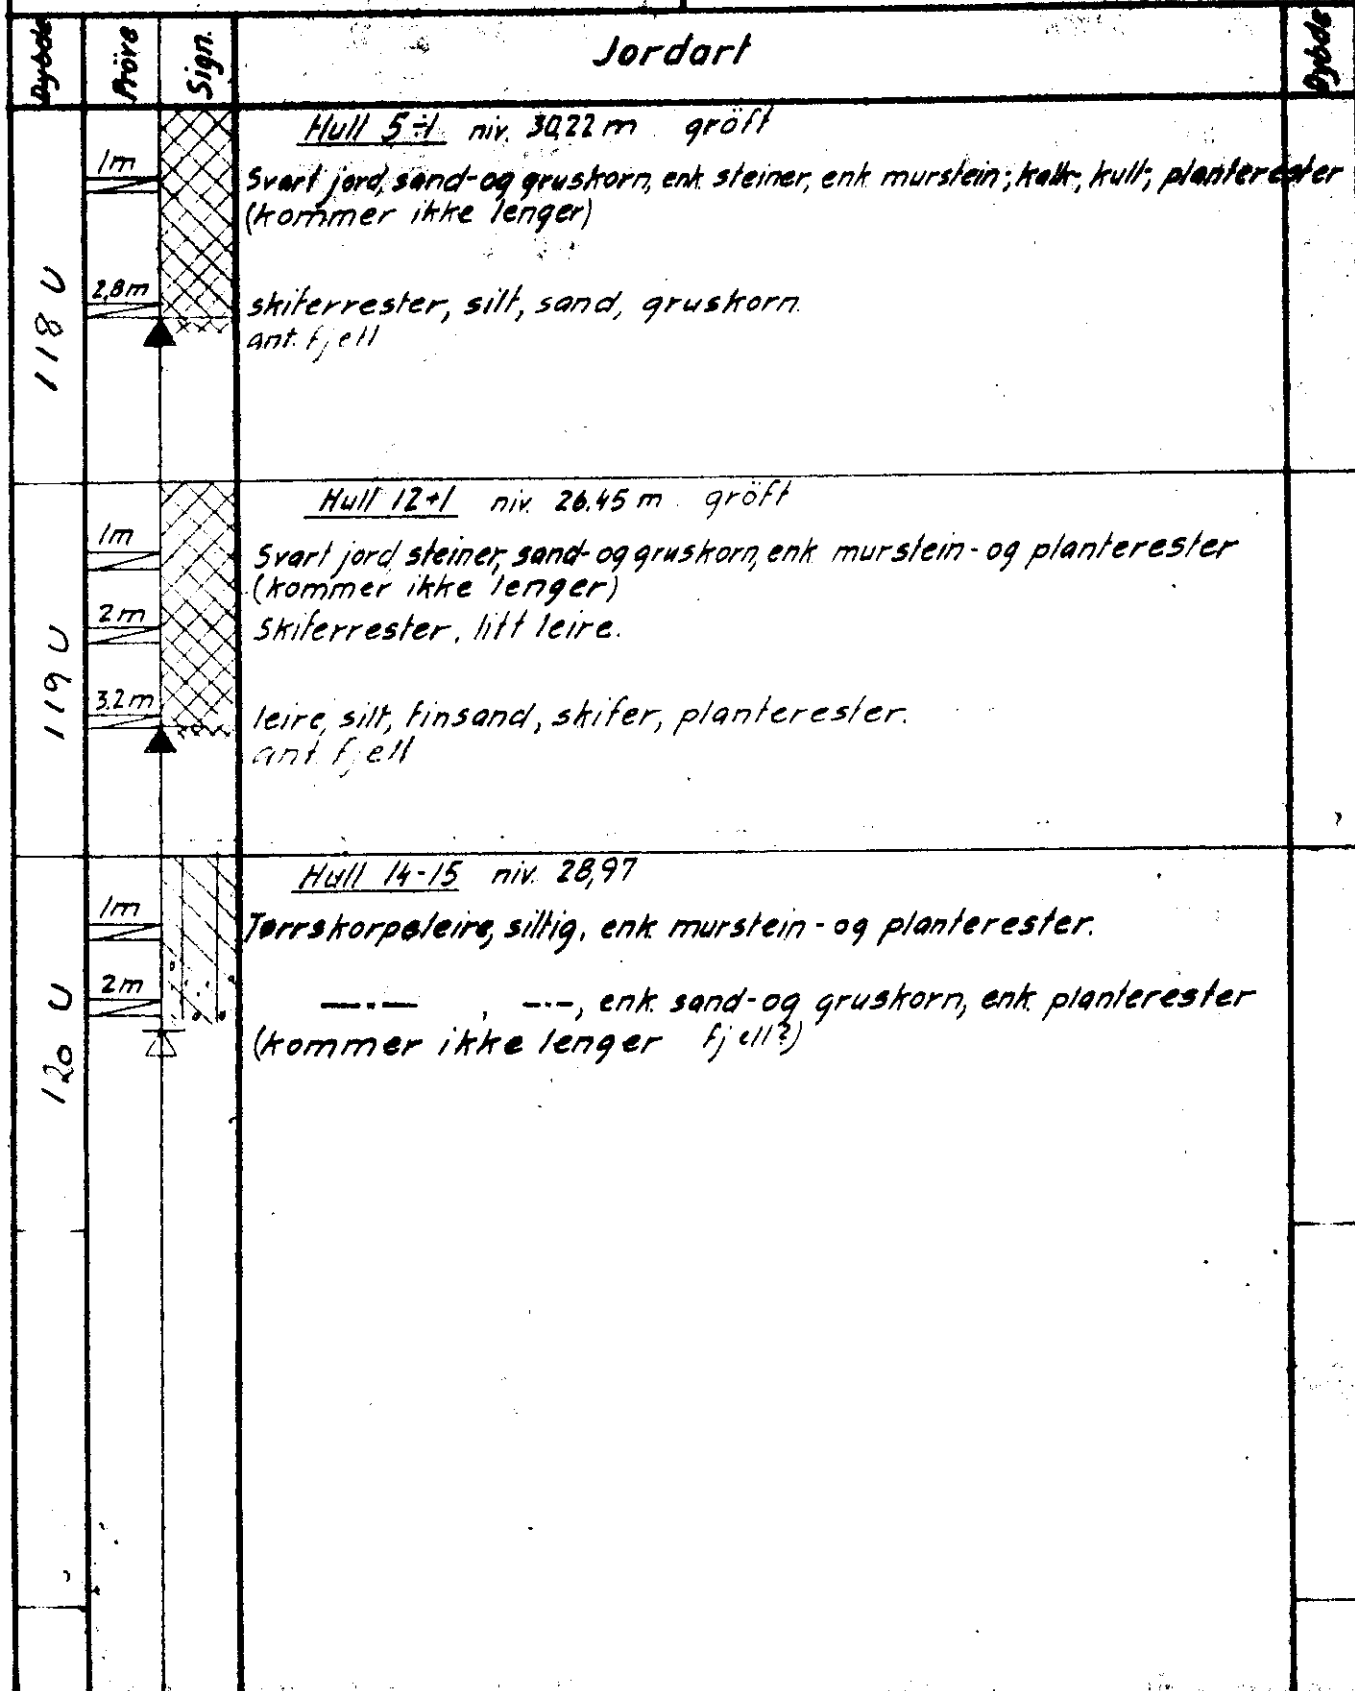 Dybde Pröve Sign. Jordart Dybde
118 U
Hull 5÷1 niv. 30,22 m gröft
1m
Svart jord, sand- og gruskorn, enk steiner, enk murstein-, kalk-, kull-, planterester
(kommer ikke lenger)
2,8m
skiferrester, silt, sand, gruskorn.
ant. fjell
119 U
Hull 12+1 niv. 26.45 m gröft
1m
Svart jord, steiner, sand- og gruskorn, enk murstein- og planterester
(kommer ikke lenger)
2m
Skiferrester, litt leire.
3.2m
leire, silt, finsand, skifer, planterester.
ant. fjell
120 U
Hull 14-15 niv. 28,97
1m
Tørrskorpeleire, siltig, enk murstein- og planterester.
2m
—·— , -·-, enk sand- og gruskorn, enk planterester
(kommer ikke lenger fjell?)